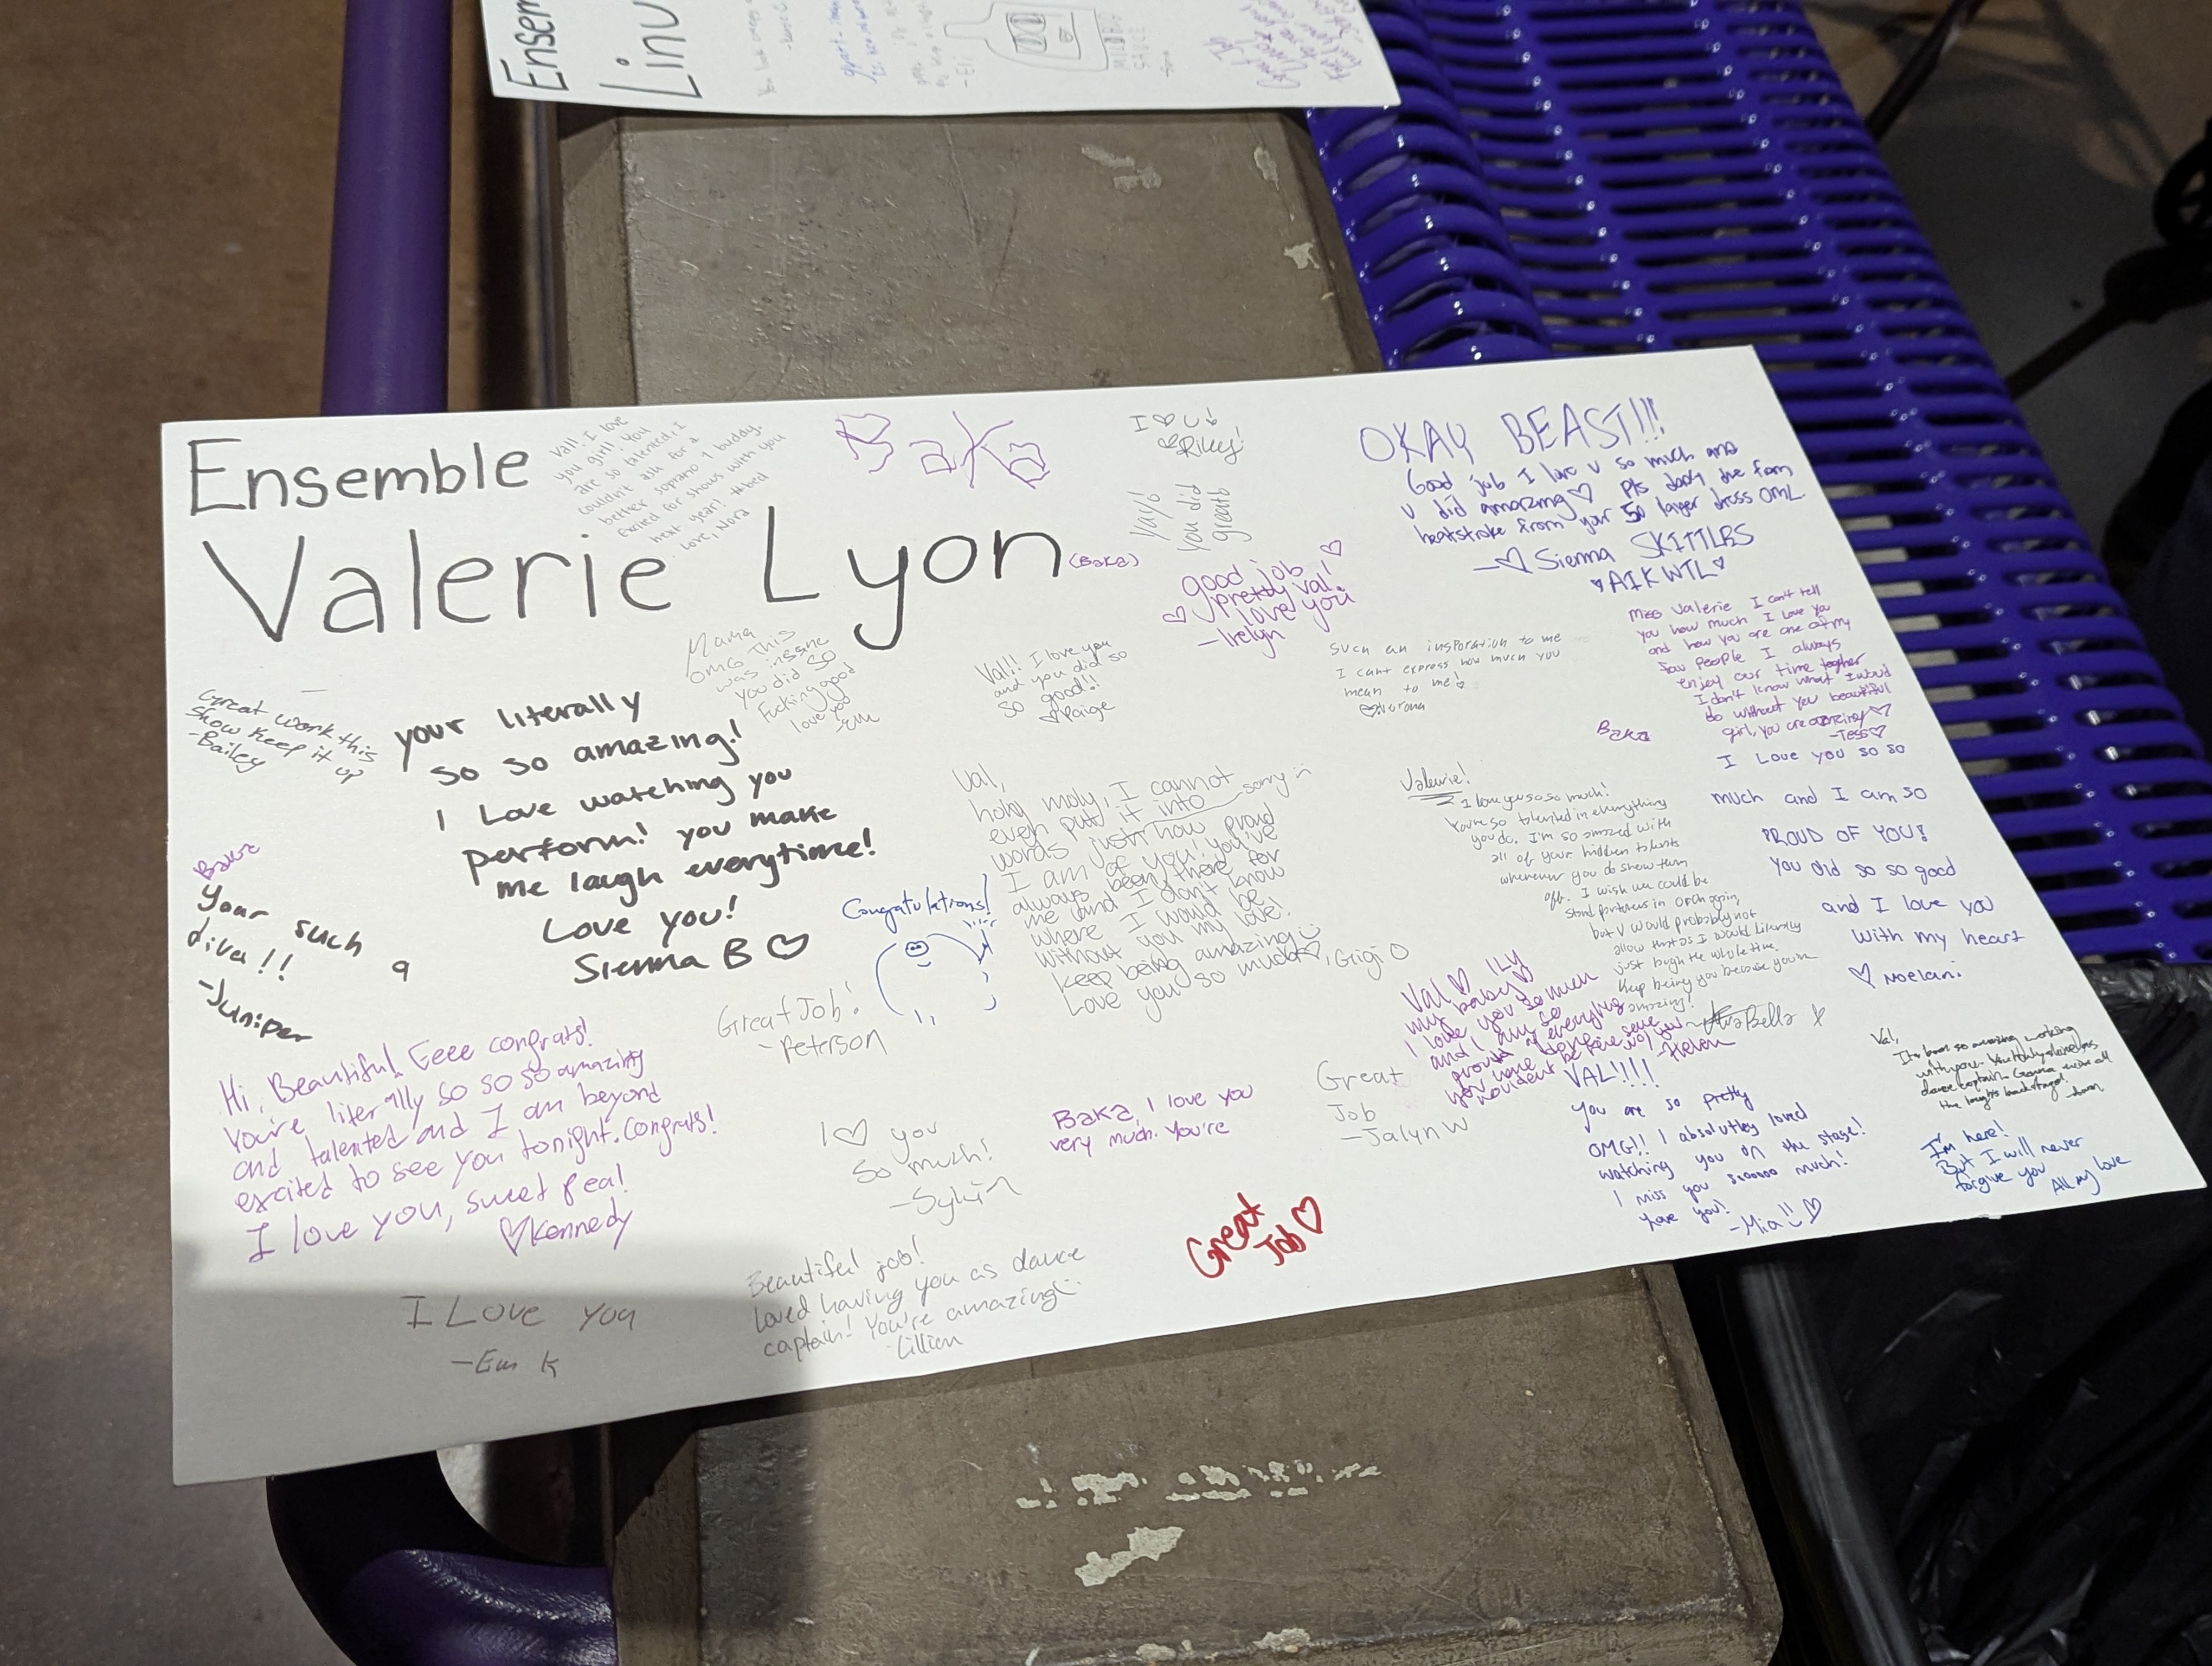 Ensem
Linv
-Eli
SAUCE
Ensemble
Valerie Lyon
(Baka)
Val!! I love
you girl! You
are so talented. I
couldn't ask for a
better soprano 1 buddy.
Excited for shows with you
next year!
Love, Nora
Baka
I ♡ U!
♡Riley!
Yay!
You did
great!
OKAY BEAST!!!
Good job I love u so much and
u did amazing♡ pls don't die from
heatstroke from your 50 layer dress OML
-♡ Sienna SKITTLES
♥AIKWTL♥
good job
pretty val!
love you
-Irelyn
Mama
OMG This
was inssne
you did so
Fucking good
love you
-Em
Val!! I love you
and you did so
so good!!
♡Paige
Such an insporation to me
I cant express how much you
mean to me!
Miss Valerie I can't tell
you how much I love you
and how you are one of my
few people I always
enjoy our time togther
I don't know what I would
do without you beautiful
girl, you are amazing♡
-Tess♡
Baka
Great work this
show keep it up
-Bailey
your literally
so so amazing!
I Love watching you
perform! you make
me laugh everytime!
Love you!
Sienna B ♡
Val,
holy moly, I cannot
even putt it into sorry
words just how proud
I am of you! you've
always been there for
me and I don't know
where I would be
without you my love!
keep being amazing
Love you so much♡, Gigi
Valerie!
I love you so so much!
You're so talented in everything
you do. I'm so amazed with
all of your hidden talents
whenever you do show them
off. I wish we could be
stand partners in orch again
but V would probably not
allow that as I would literally
just laugh the whole time.
Keep being you because you're
amazing!
-AraBella
I Love you so so
much and I am so
PROUD OF YOU!
you did so so good
and I love you
with my heart
♡ Noelani
Baka
Your such a
diva!!
-Juniper
Congratulations!
Great Job!
-Peterson
Hi, Beautiful! Eeee congrats!
You're literally so so so amazing
and talented and I am beyond
excited to see you tonight. Congrats!
I love you, sweet pea!
♡Kennedy
Val♡ ILY
my baby
I love you so much
and I am so
proud of everything
you have done
-Helen
Val,
It's been so amazing working
with you.
dance captain.
the laughs backstage!
Great
Job
-Jalyn W
VAL!!!!
You are so pretty
OMG!! I absolutley loved
watching you on the stage!
I miss you sooooo much!
Love you!
-Mia!! ♡
I'm here!
But I will never
forgive you
All my love
I ♡ you
so much!
-Sylvia
Baka, I love you
very much. You're
Great
Job ♡
Beautiful job!
loved having you as dance
captain! You're amazing
-Lillian
I Love you
-Em K